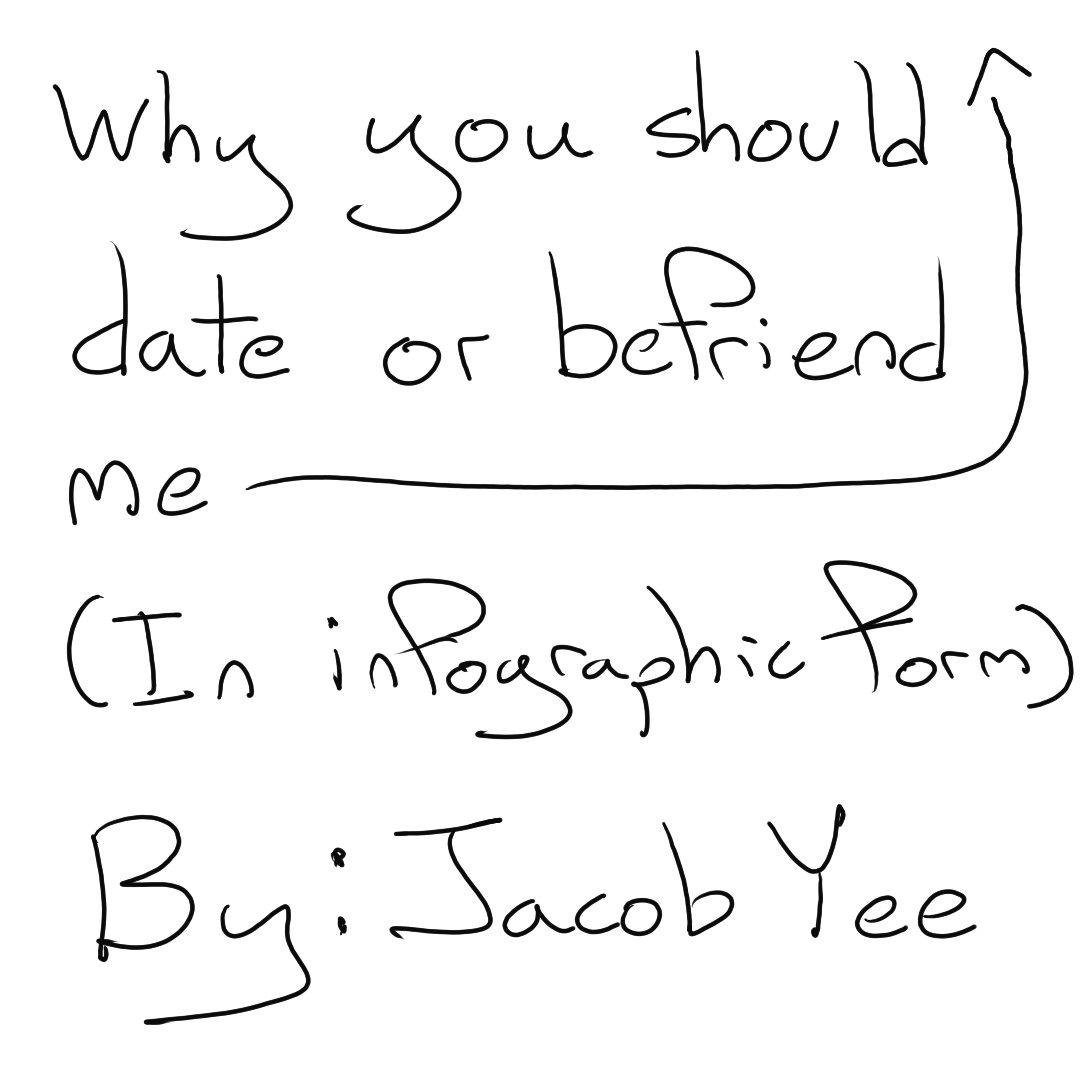 Why you should
date or befriend
me
(In infographic form)
By: Jacob Yee